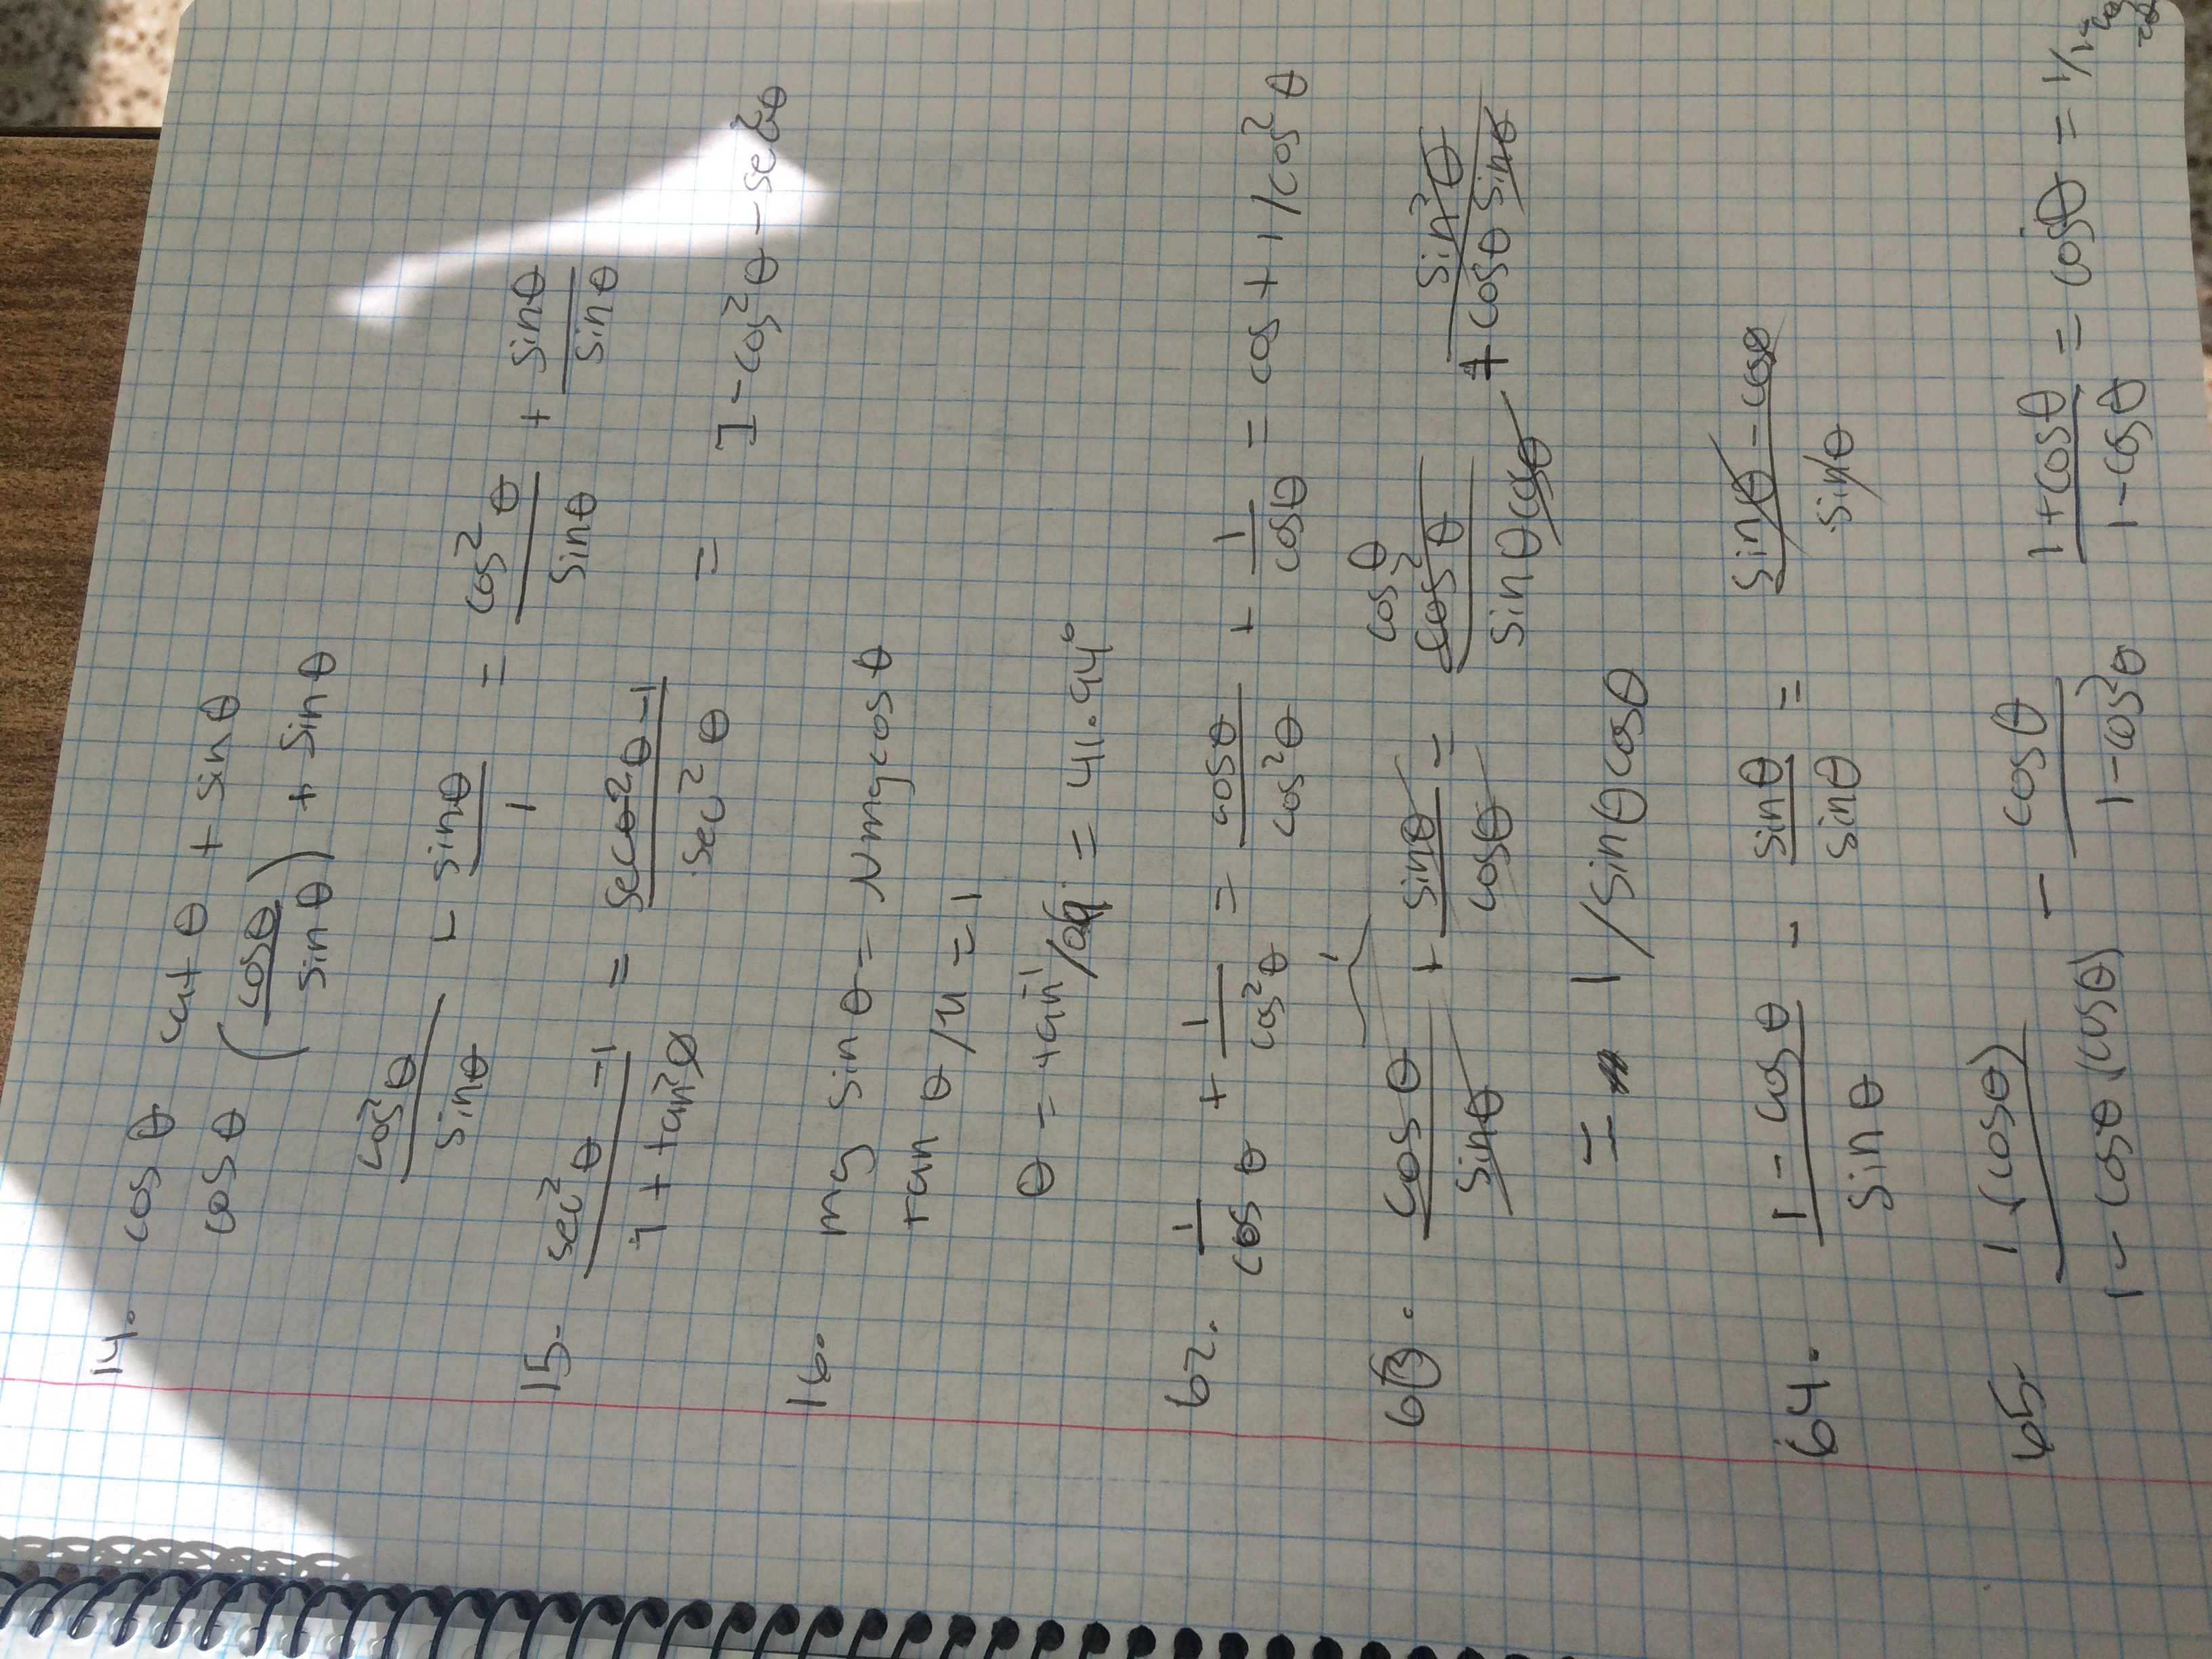 14. cos θ cot θ + sin θ
cos θ (cosθ / sin θ) + sin θ
cos²θ / sinθ + sinθ / 1 = cos² θ / sinθ + sinθ / sinθ
15. sec² θ - 1 / 1 + tan²θ = sec²θ - 1 / sec² θ = 1 - cos² θ -
16. mg sin θ = μmg cos θ
tan θ / μ = 1
θ = tan⁻¹ / = 41.94°
62. 1 / cos θ + 1 / cos² θ = cosθ / cos²θ + 1 / cosθ = cos + 1 / cos² θ
cos θ
63. cos θ / sinθ + sinθ / cosθ = cos² θ / sin θ cosθ + sin²θ / cosθ sinθ
= 1 / sin θ cos θ
64. 1 - cos θ / sin θ - sinθ / sinθ = sinθ - cosθ / sinθ
65. 1 (cos θ) / 1 - cosθ (cosθ) - cos θ / 1 - cos²θ 1 + cosθ / 1 - cosθ = cosθ = 1/1-